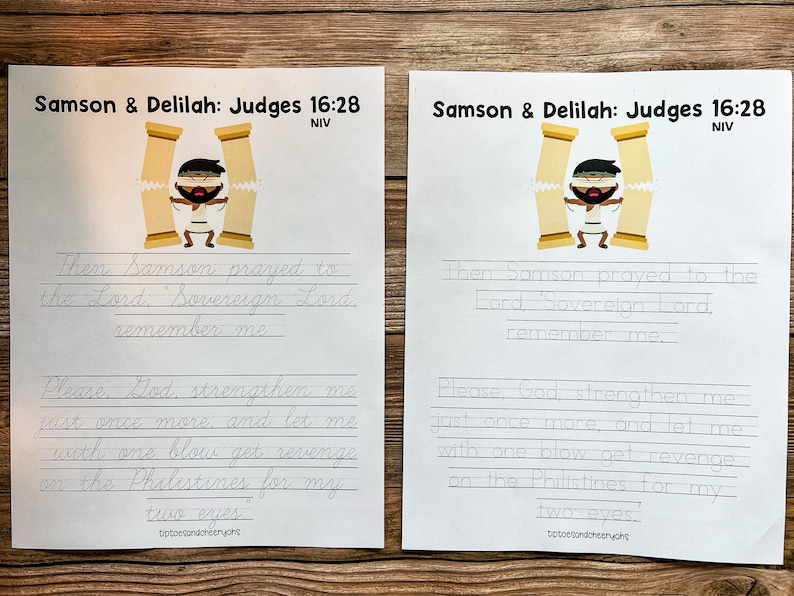 Samson & Delilah: Judges 16:28
NIV
Then Samson prayed to
the Lord, "Sovereign Lord,
remember me.
Please, God, strengthen me
just once more, and let me
with one blow get revenge
on the Philistines for my
two eyes."
tiptoesandcheeryohs
Samson & Delilah: Judges 16:28
NIV
Then Samson prayed to the
Lord, "Sovereign Lord,
remember me.
Please, God, strengthen me
just once more, and let me
with one blow get revenge
on the Philistines for my
two eyes."
tiptoesandcheeryohs